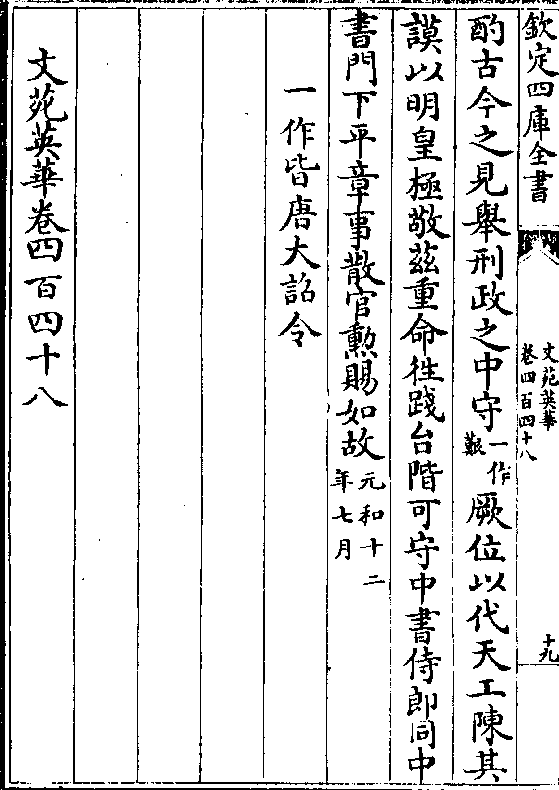 欽定四庫全書
文苑英華
卷四百四十八
十九
酌古今之見舉刑政之中守一作艱厥位以代天工陳其
謨以明皇極敬茲重命徃踐台階可守中書侍郎同中
書門下平章事散官勲賜如故元和十二年七月
一作皆唐大詔令
文苑英華卷四百四十八